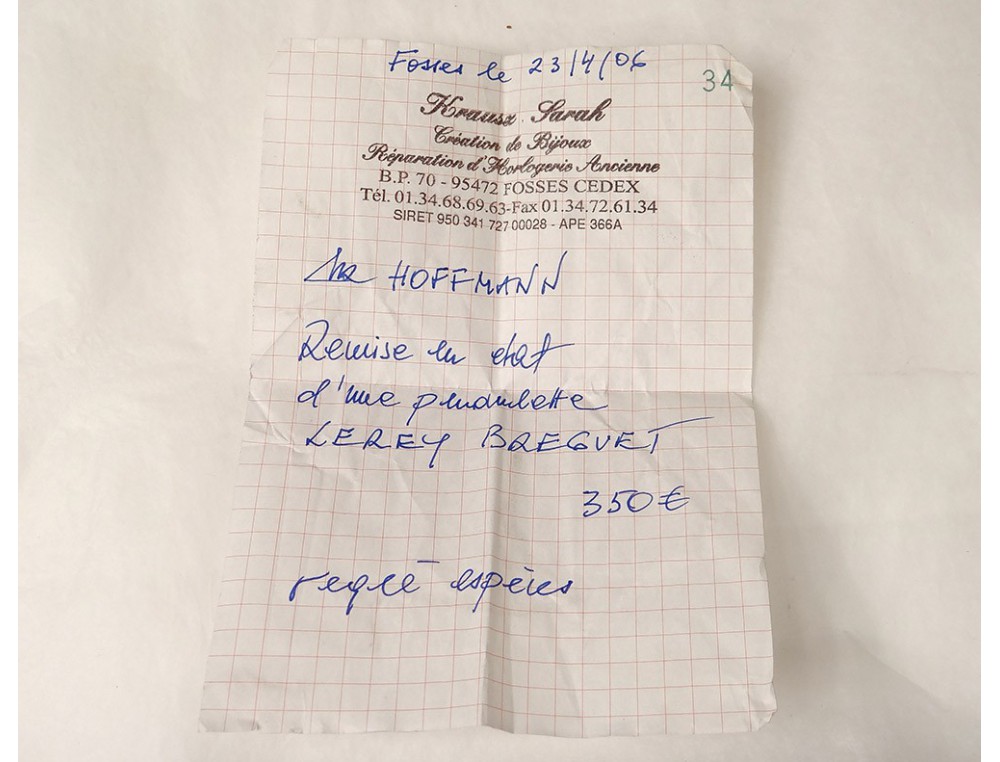 Fosses le 23/4/06
34
Krausz Sarah
Création de Bijoux
Réparation d'Horlogerie Ancienne
B.P. 70 - 95472 FOSSES CEDEX
Tél. 01.34.68.69.63-Fax 01.34.72.61.34
SIRET 950 341 727 00028 - APE 366A
HOFFMANN
Remise en etat
d'une pendulette
LEREY BREGUET
350 €
reglé espèces